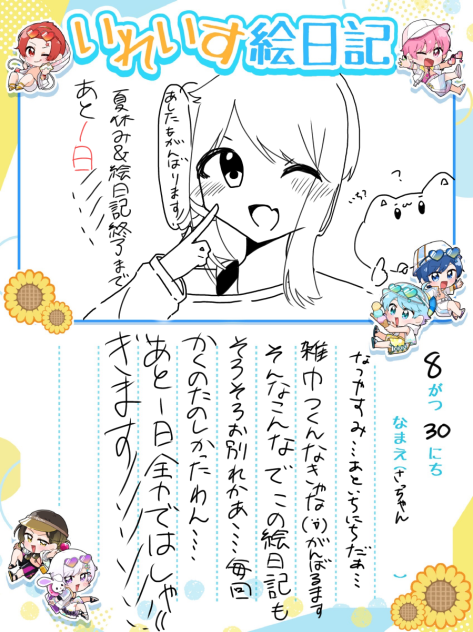 いれいす絵日記
あしたもがんばります!
夏休み&絵日記終了まで
あと一日
?
8がつ30にち
なまえ(さっちゃん)
なつやすみ…あといちにちだぁ…
雑巾つくんなきゃな(汗)がんばるます
そんなこんなでこの絵日記も
そろそろお別れかぁ…、毎回
かくのたのしかったわん…
あと一日全力ではしゃ
ぎます